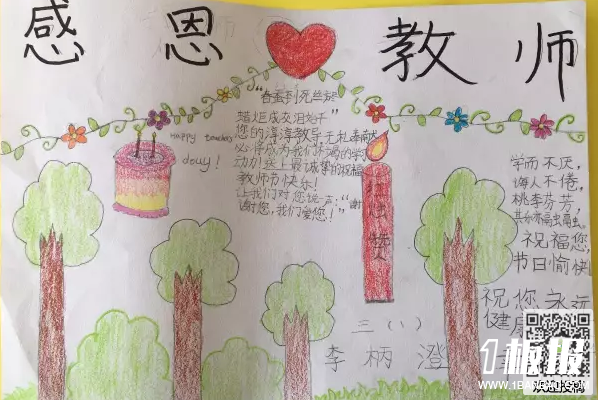 感恩教师
"春蚕到死丝方尽
蜡炬成灰泪始干"
您的谆谆教导无私奉献
教师节快乐!
让我们对您说一声:"谢
谢您,我们爱您!"
Happy teachers
day!
红烛赞
学而不厌,
诲人不倦,
桃李芬芳,
其乐融融。
祝福您
节日愉快
祝您永远
健康
三(1)
李柄澄
1板报
WWW.1BANBAO.COM
欢迎投稿